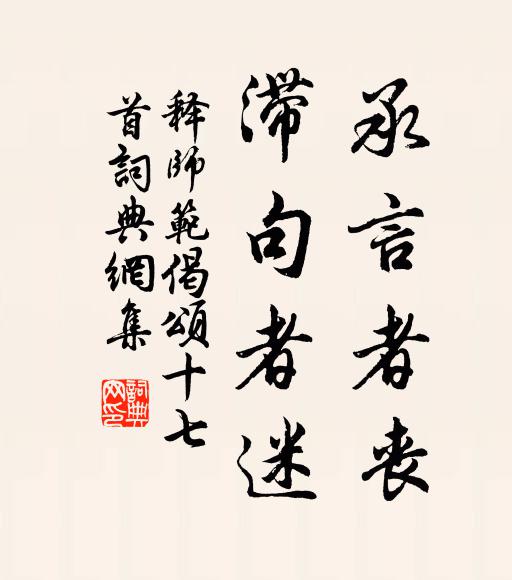 承言者丧
滞句者迷
释師範偈頌十七
首詞典網集
詞典网印